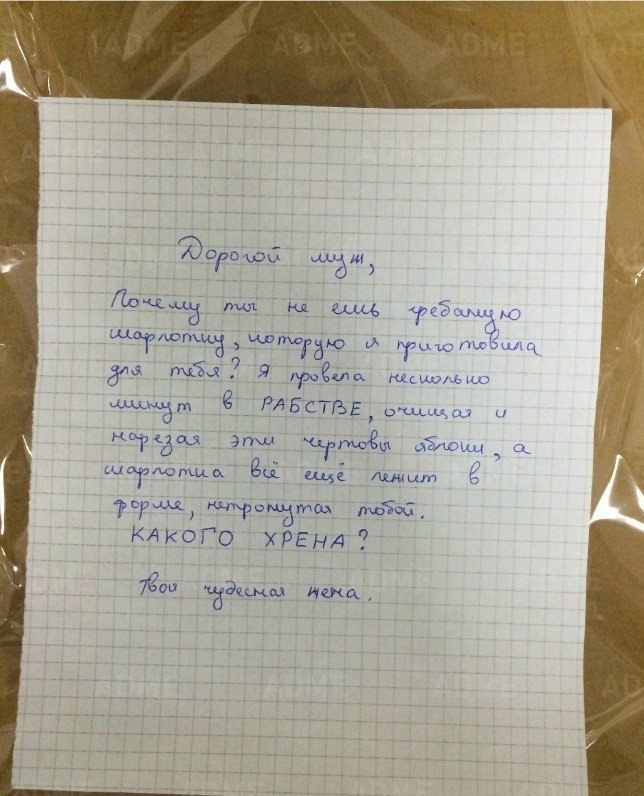 ADME ADME ADME
Дорогой муж,
Почему ты не ешь гребаную
шарлотку, которую я приготовила
для тебя? Я провела несколько
минут в РАБСТВЕ, очищая и
нарезая эти чертовы яблоки, а
шарлотка всё ещё лежит в
форме, нетронутая тобой.
КАКОГО ХРЕНА?
Твоя чудесная жена.